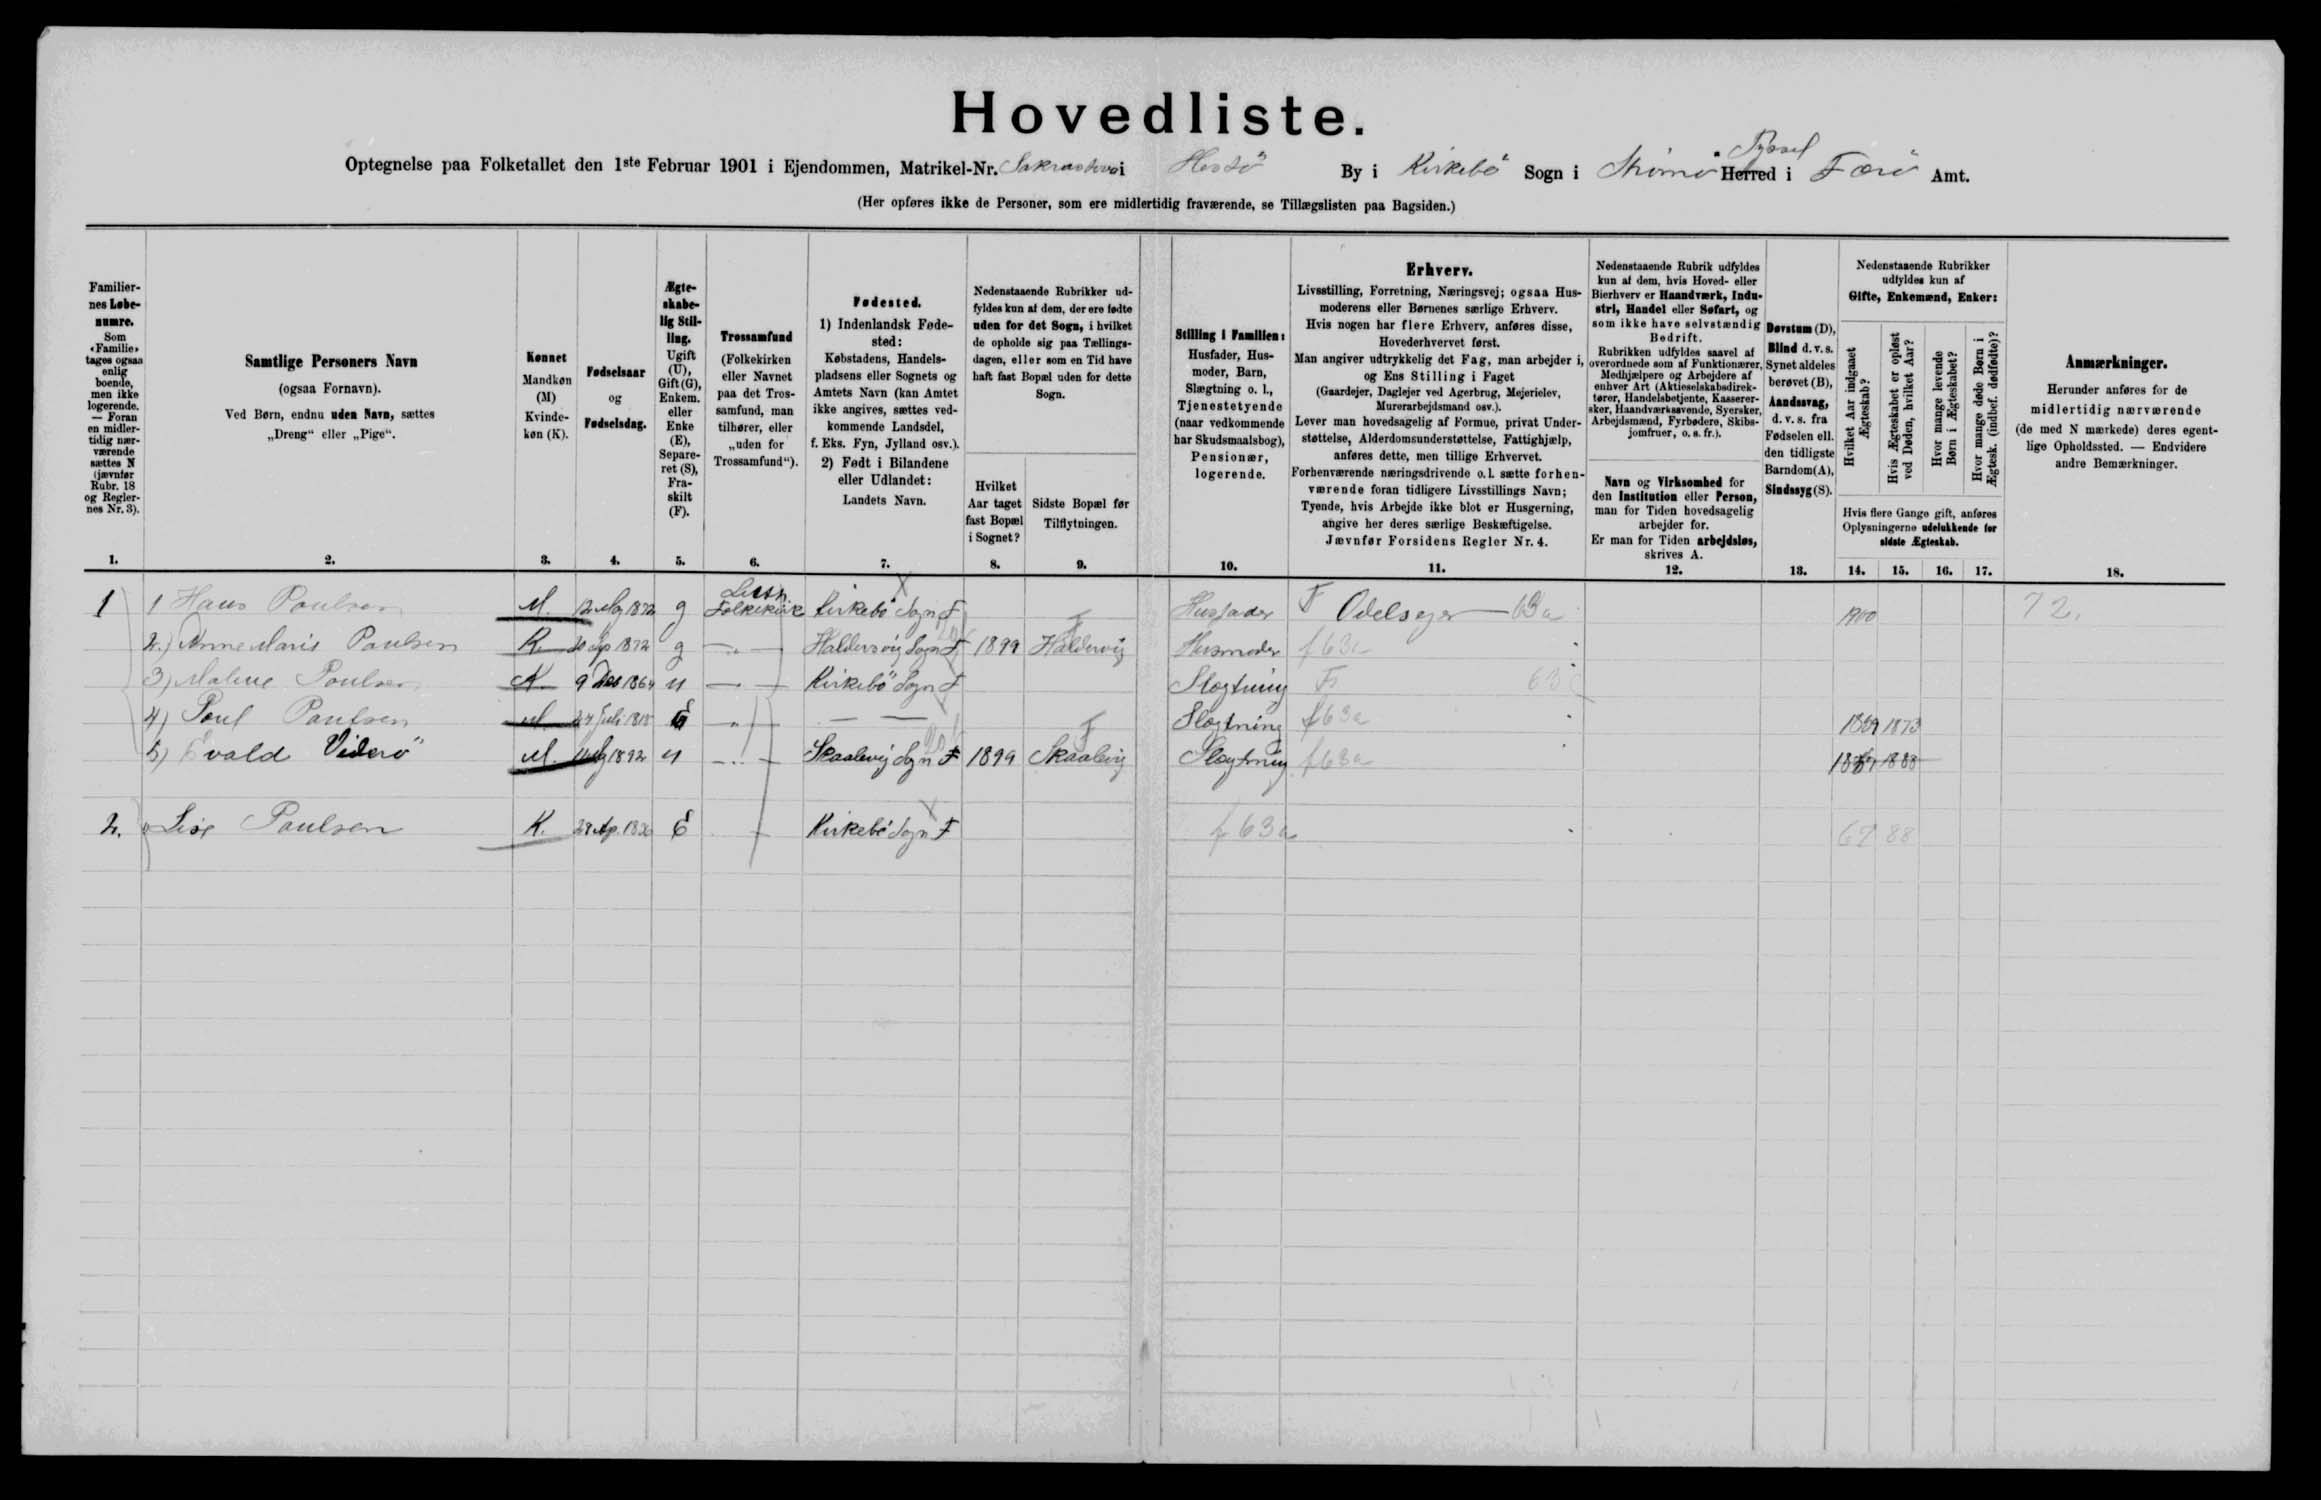 Hovedliste.
Optegnelse paa Folketallet den 1ste Februar 1901 i Ejendommen, Matrikel-Nr. i Hestö By i Kirkebö Sogn i Strömö Herred Syssel i Færö Amt.
(Her opføres ikke de Personer, som ere midlertidig fraværende, se Tillægslisten paa Bagsiden.)
Familier-
nes Løbe-
numre.
Som
«Familie»
tages ogsaa
enlig
boende,
men ikke
logerende.
— Foran
en midler-
tidig nær-
værende
sættes N
(jævnfør
Rubr. 18
og Regler-
nes Nr. 3).
1.
Samtlige Personers Navn
(ogsaa Fornavn).
Ved Børn, endnu uden Navn, sættes
„Dreng“ eller „Pige“.
2.
Kønnet
Mandkøn
(M)
Kvinde-
køn (K).
3.
Fødselsaar
og
Fødselsdag.
4.
Ægte-
skabe-
lig Stil-
ling.
Ugift
(U),
Gift (G),
Enkem.
eller
Enke
(E),
Separe-
ret (S),
Fra-
skilt
(F).
5.
Trossamfund
(Folkekirken
eller Navnet
paa det Tros-
samfund, man
tilhører, eller
„uden for
Trossamfund“).
6.
Fødested.
1) Indenlandsk Føde-
sted:
Købstadens, Handels-
pladsens eller Sognets og
Amtets Navn (kan Amtet
ikke angives, sættes ved-
kommende Landsdel,
f. Eks. Fyn, Jylland osv.).
2) Født i Bilandene
eller Udlandet:
Landets Navn.
7.
Nedenstaaende Rubrikker ud-
fyldes kun af dem, der ere fødte
uden for det Sogn, i hvilket
de opholde sig paa Tællings-
dagen, eller som en Tid have
haft fast Bopæl uden for dette
Sogn.
Hvilket
Aar taget
fast Bopæl
i Sognet?
8.
Sidste Bopæl før
Tilflytningen.
9.
Stilling i Familien:
Husfader, Hus-
moder, Barn,
Slægtning o. l.,
Tjenestetyende
(naar vedkommende
har Skudsmaalsbog),
Pensionær,
logerende.
10.
Erhverv.
Livsstilling, Forretning, Næringsvej; ogsaa Hus-
moderens eller Børnenes særlige Erhverv.
Hvis nogen har flere Erhverv, anføres disse,
Hovederhvervet først.
Man angiver udtrykkelig det Fag, man arbejder i,
og Ens Stilling i Faget
(Gaardejer, Daglejer ved Agerbrug, Mejerielev,
Murerarbejdsmand osv.).
Lever man hovedsagelig af Formue, privat Under-
støttelse, Alderdomsunderstøttelse, Fattighjælp,
anføres dette, men tillige Erhvervet.
Forhenværende næringsdrivende o. l. sætte forhen-
værende foran tidligere Livsstillings Navn;
Tyende, hvis Arbejde ikke blot er Husgerning,
angive her deres særlige Beskæftigelse.
Jævnfør Forsidens Regler Nr. 4.
11.
Nedenstaaende Rubrik udfyldes
kun af dem, hvis Hoved- eller
Bierhverv er Haandværk, Indu-
stri, Handel eller Søfart, og
som ikke have selvstændig
Bedrift.
Rubrikken udfyldes saavel af
overordnede som af Funktionærer,
Medhjælpere og Arbejdere af
enhver Art (Aktieselskabsdirek-
tører, Handelsbetjente, Kasserer-
sker, Haandværkssvende, Syersker,
Arbejdsmænd, Fyrbødere, Skibs-
jomfruer, o. s. fr.).
Navn og Virksomhed for
den Institution eller Person,
man for Tiden hovedsagelig
arbejder for.
Er man for Tiden arbejdsløs,
skrives A.
12.
Døvstum (D),
Blind d. v. s.
Synet aldeles
berøvet (B),
Aandssvag,
d. v. s. fra
Fødselen ell.
den tidligste
Barndom (A),
Sindssyg (S).
13.
Nedenstaaende Rubrikker
udfyldes kun af
Gifte, Enkemænd, Enker:
Hvilket Aar indgaaet
Ægteskab?
Hvis Ægteskabet er opløst
ved Døden, hvilket Aar?
Hvor mange levende
Børn i Ægteskabet?
Hvor mange døde Børn i
Ægtesk. (indbef. dødfødte)?
Hvis flere Gange gift, anføres
Oplysningerne udelukkende for
sidste Ægteskab.
14. 15. 16. 17.
Anmærkninger.
Herunder anføres for de
midlertidig nærværende
(de med N mærkede) deres egent-
lige Opholdssted. — Endvidere
andre Bemærkninger.
18.
1 1 Hans Poulsen M. 12 Maj 1872 g Luth Folkekirke Kirkebö Sogn F Husfader F Odelsejer 63a 1900 72.
2.) Anne Marie Poulsen K. 1872 g Haldersvig Sogn F 1899 Haldervig Husmoder f 63a
3) Malene Poulsen K. 9 Dec 1864 u Kirkebö Sogn F Slægtning F 63
4) Poul Poulsen M. 27 Juli 1818 E Slægtning f 63a 1859 1873
5) Evald Viderö M. 1892 u Skaalevig Sogn F 1899 Skaalevig Slægtning f 63a 1888
2. Lise Poulsen K. 28 Ap. 1826 E Kirkebö Sogn F f 63a 67 88